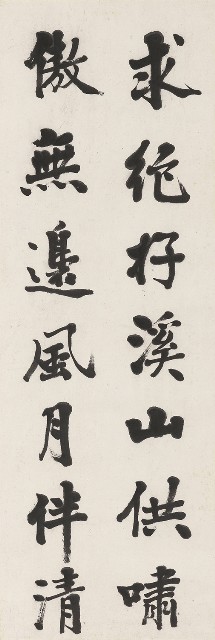 求絶好溪山供嘯
傲無邊風月伴清